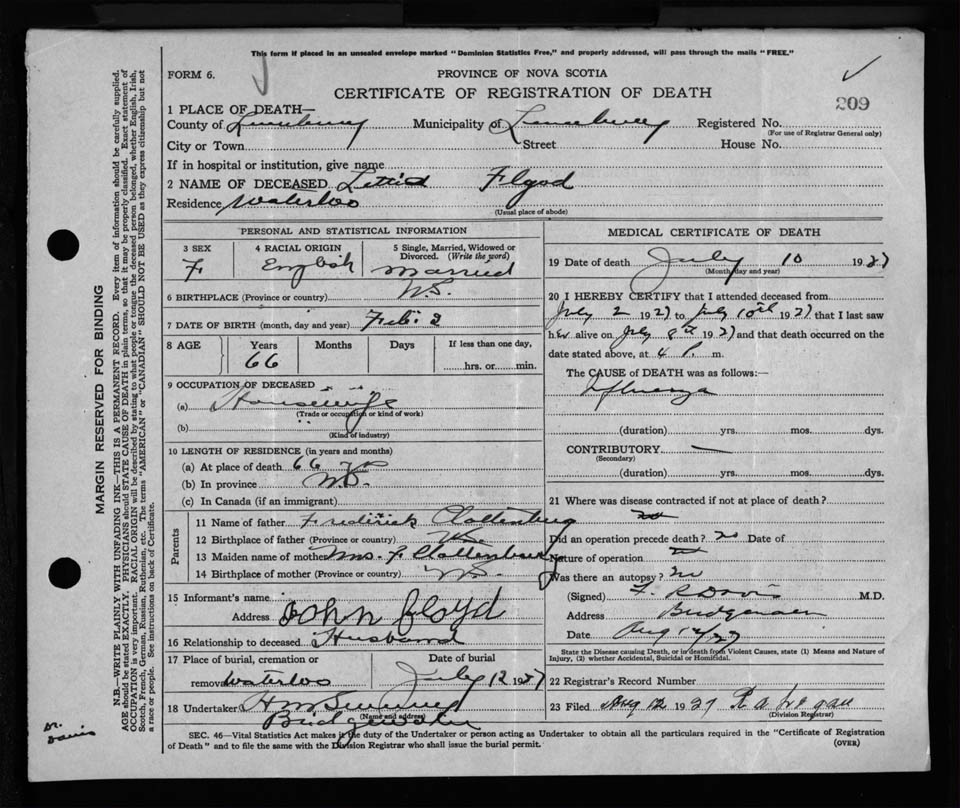 This form if placed in an unsealed envelope marked "Dominion Statistics Free," and properly addressed, will pass through the mails "FREE."
FORM 6.
PROVINCE OF NOVA SCOTIA
CERTIFICATE OF REGISTRATION OF DEATH
209
1 PLACE OF DEATH—
County of Lunenburg Municipality of Lunenburg Registered No.
(For use of Registrar General only)
City or Town Street House No.
If in hospital or institution, give name
2 NAME OF DECEASED Floyd
Residence Waterloo
(Usual place of abode)
PERSONAL AND STATISTICAL INFORMATION
3 SEX 4 RACIAL ORIGIN 5 Single, Married, Widowed or Divorced. (Write the word)
F English Married
6 BIRTHPLACE (Province or country) N.S.
7 DATE OF BIRTH (month, day and year) Feb. 2
8 AGE Years Months Days If less than one day,
66 hrs. or min.
9 OCCUPATION OF DECEASED
(a) Housewife
(Trade or occupation or kind of work)
(b)
(Kind of industry)
10 LENGTH OF RESIDENCE (in years and months)
(a) At place of death 66
(b) In province N.S.
(c) In Canada (if an immigrant)
Parents
11 Name of father Frederick
12 Birthplace of father (Province or country)
13 Maiden name of mother Mrs. F
14 Birthplace of mother (Province or country) N.S.
15 Informant's name
Address John Floyd
16 Relationship to deceased Husband
17 Place of burial, cremation or Date of burial
removal Waterloo July 12 1927
18 Undertaker
(Name and address)
Bridgewater
MEDICAL CERTIFICATE OF DEATH
19 Date of death July 10 1927
(Month, day and year)
20 I HEREBY CERTIFY that I attended deceased from
July 2 1927 to July 10th 1927 that I last saw
her alive on July 8th 1927 and that death occurred on the
date stated above, at 4 P. m.
The CAUSE of DEATH was as follows:—
Influenza
(duration) yrs. mos. dys.
CONTRIBUTORY —
(Secondary)
(duration) yrs. mos. dys.
21 Where was disease contracted if not at place of death?
Did an operation precede death? no Date of
Nature of operation
Was there an autopsy? no
(Signed) F. R Davis M.D.
Address Bridgewater
Date Aug 12/27
State the Disease causing Death, or in death from Violent Causes, state (1) Means and Nature of
Injury, (2) whether Accidental, Suicidal or Homicidal.
22 Registrar's Record Number
23 Filed Aug 12 1927
(Division Registrar)
SEC. 46—Vital Statistics Act makes it the duty of the Undertaker or person acting as Undertaker to obtain all the particulars required in the "Certificate of Registration
of Death" and to file the same with the Division Registrar who shall issue the burial permit. (OVER)
MARGIN RESERVED FOR BINDING
N.B.—WRITE PLAINLY WITH UNFADING INK—THIS IS A PERMANENT RECORD. Every item of information should be carefully supplied.
AGE should be stated EXACTLY. PHYSICIANS should STATE CAUSE OF DEATH in plain terms, so that it may be properly classified. Exact statement of
OCCUPATION is very important. RACIAL ORIGIN will be described by stating to what people or tongue the deceased person belonged, whether English, Irish,
Scotch, French, German, Russian, Ruthenian, etc. The terms "AMERICAN" or "CANADIAN" SHOULD NOT BE USED as they express citizenship but not
a race or people. See instructions on back of Certificate.
Dr.
Davis